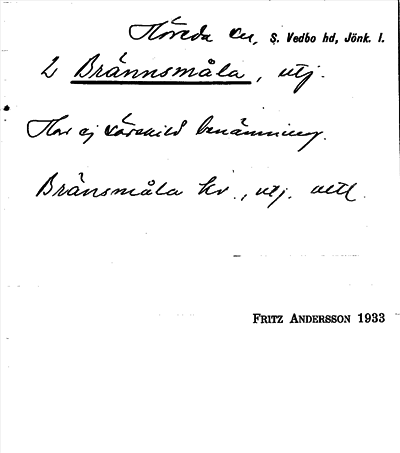 Höreda sn, S. Vedbo hd, Jönk. l.
2 Brännsmåla, utj.
Har ej särskild benämning.
Bränsmåla hv., utj.
FRITZ ANDERSSON 1933